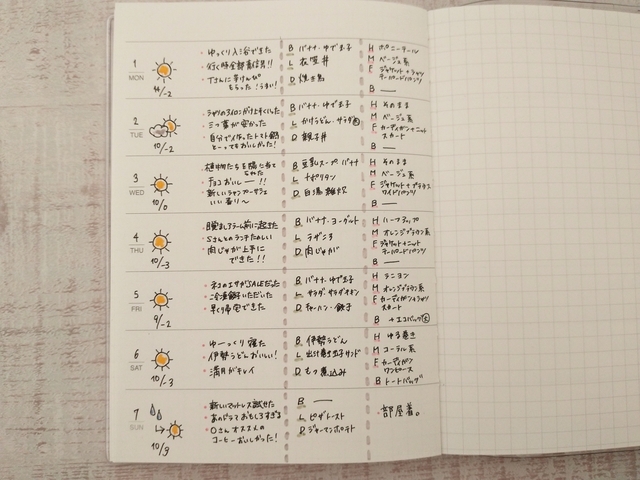 1
MON
11/-2
・ゆっくり入浴できた
・行く時全部青信号!!
・Tさんに芋けんぴもらった!うまい!
B バナナ・ゆで玉子
L 衣笠丼
D 焼き鳥
H ポニーテール
M ベージュ系
F ジャケット+シャツ
テーパードパンツ
B ―
2
TUE
10/-2
・三つ葉が安かった
・自分で作ったトマト鍋
とーってもおいしかった!
B バナナ・ゆで玉子
L かけうどん・サラダ
D 親子丼
H そのまま
M ベージュ系
F カーディガン+ニット
スカート
B ―
3
WED
10/0
・植物たちを陽に当て
ちゃた
・チョコおいしー!!
・新しいシャンプーサフェ
いい香り〜
B 豆乳スープ・バナナ
L ナポリタン
D 白湯雑炊
H そのまま
M ベージュ系
F ジャケット+プラチナス
ワイドパンツ
B ―
4
THU
10/-3
・目覚ましアラーム前に起きた
・Sさんとのランチたのしい
・肉じゃが上手に
できた!!
B バナナ・ヨーグルト
L ラザニア
D 肉じゃが
H ハーフアップ
M オレンジブラウン系
F ジャケット+ニット
テーパードパンツ
B ―
5
FRI
9/-2
・ネコのエサがSALEだった
・ご冷凍餅いただいた
・早く帰宅できた
B バナナ・ゆで玉子
L サラダ・サラダチキン
D チャーハン・餃子
H シニヨン
M オレンジブラウン系
F カーディガン+シャツ
スカート
B +エコバッグ
6
SAT
10/-3
・ゆーっくり寝た
・伊勢うどんおいしい!
・満月がキレイ
B 伊勢うどん
L 出汁巻き玉子サンド
D もつ煮込み
H ゆる巻き
M コーラル系
F カーディガン
ワンピース
B トートバッグ
7
SUN
10/9
・新しいマットレス試せた
・あのドラマおもしろすぎる
・Oさんオススメの
コーヒーおいしかった!
B ―
L ピザトースト
D ジャーマンポテト
・部屋着。